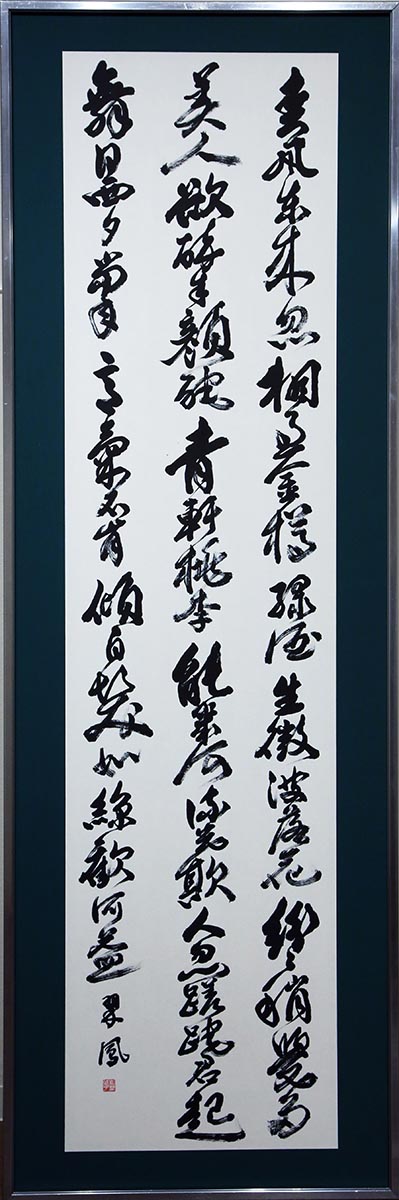 春風東來忽相過金樽緑酒生微波落花紛々稍覺多
美人欲醉朱顔酡青軒桃李能幾何流光欺人忽蹉跎君起
舞日西夕當年意氣不肯傾白髮如絲歎何益 翠鳳